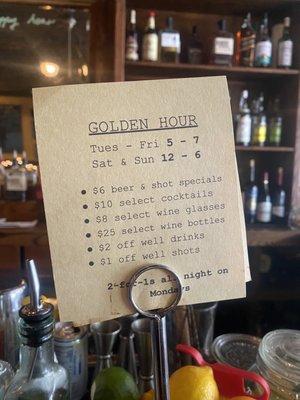 GOLDEN HOUR
Tues - Fri 5 - 7
Sat & Sun 12 - 6
• $6 beer & shot specials
• $10 select cocktails
• $8 select wine glasses
• $25 select wine bottles
• $2 off well drinks
• $1 off well shots
2-for-1s all night on
Mondays